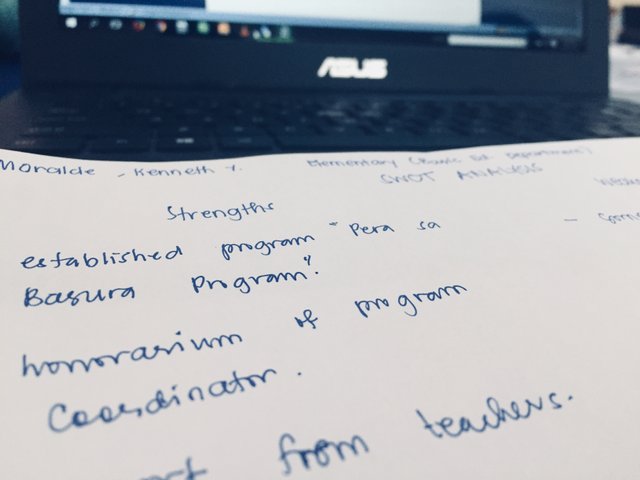 ASUS
Moralde, Kenneth Y.
Elementary (Basic Ed. Department)
SWOT ANALYSIS
Strengths
established program "Pera sa
Basura Program".
honorarium of program
Coordinator.
from teachers.